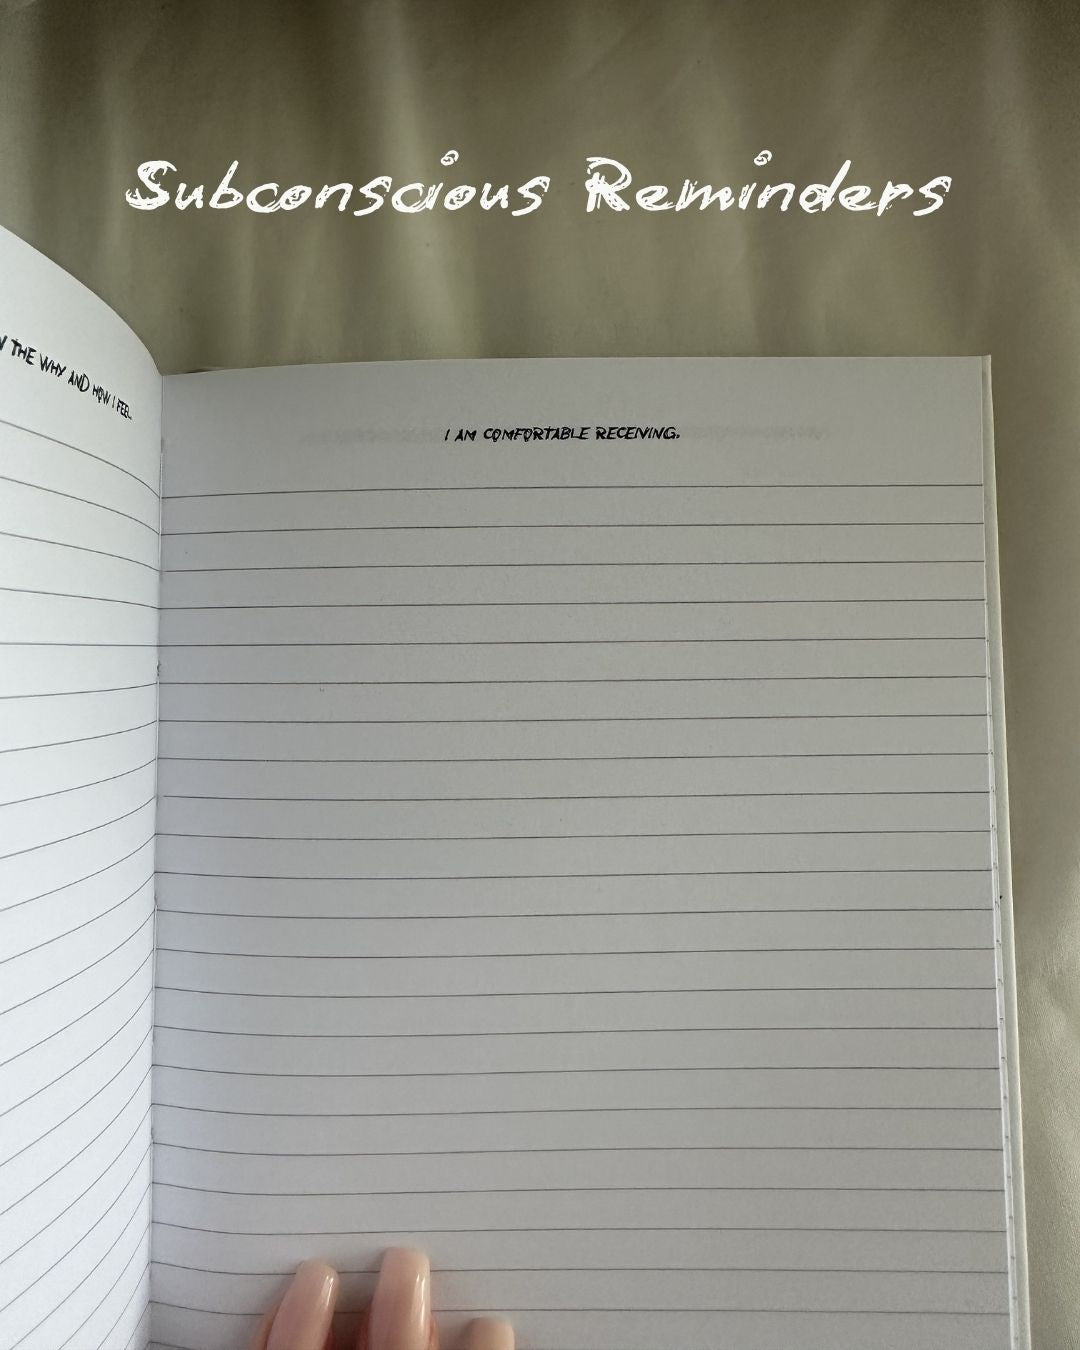 Subconscious Reminders
THE WHY AND HOW I FEEL.
I AM COMFORTABLE RECEIVING.